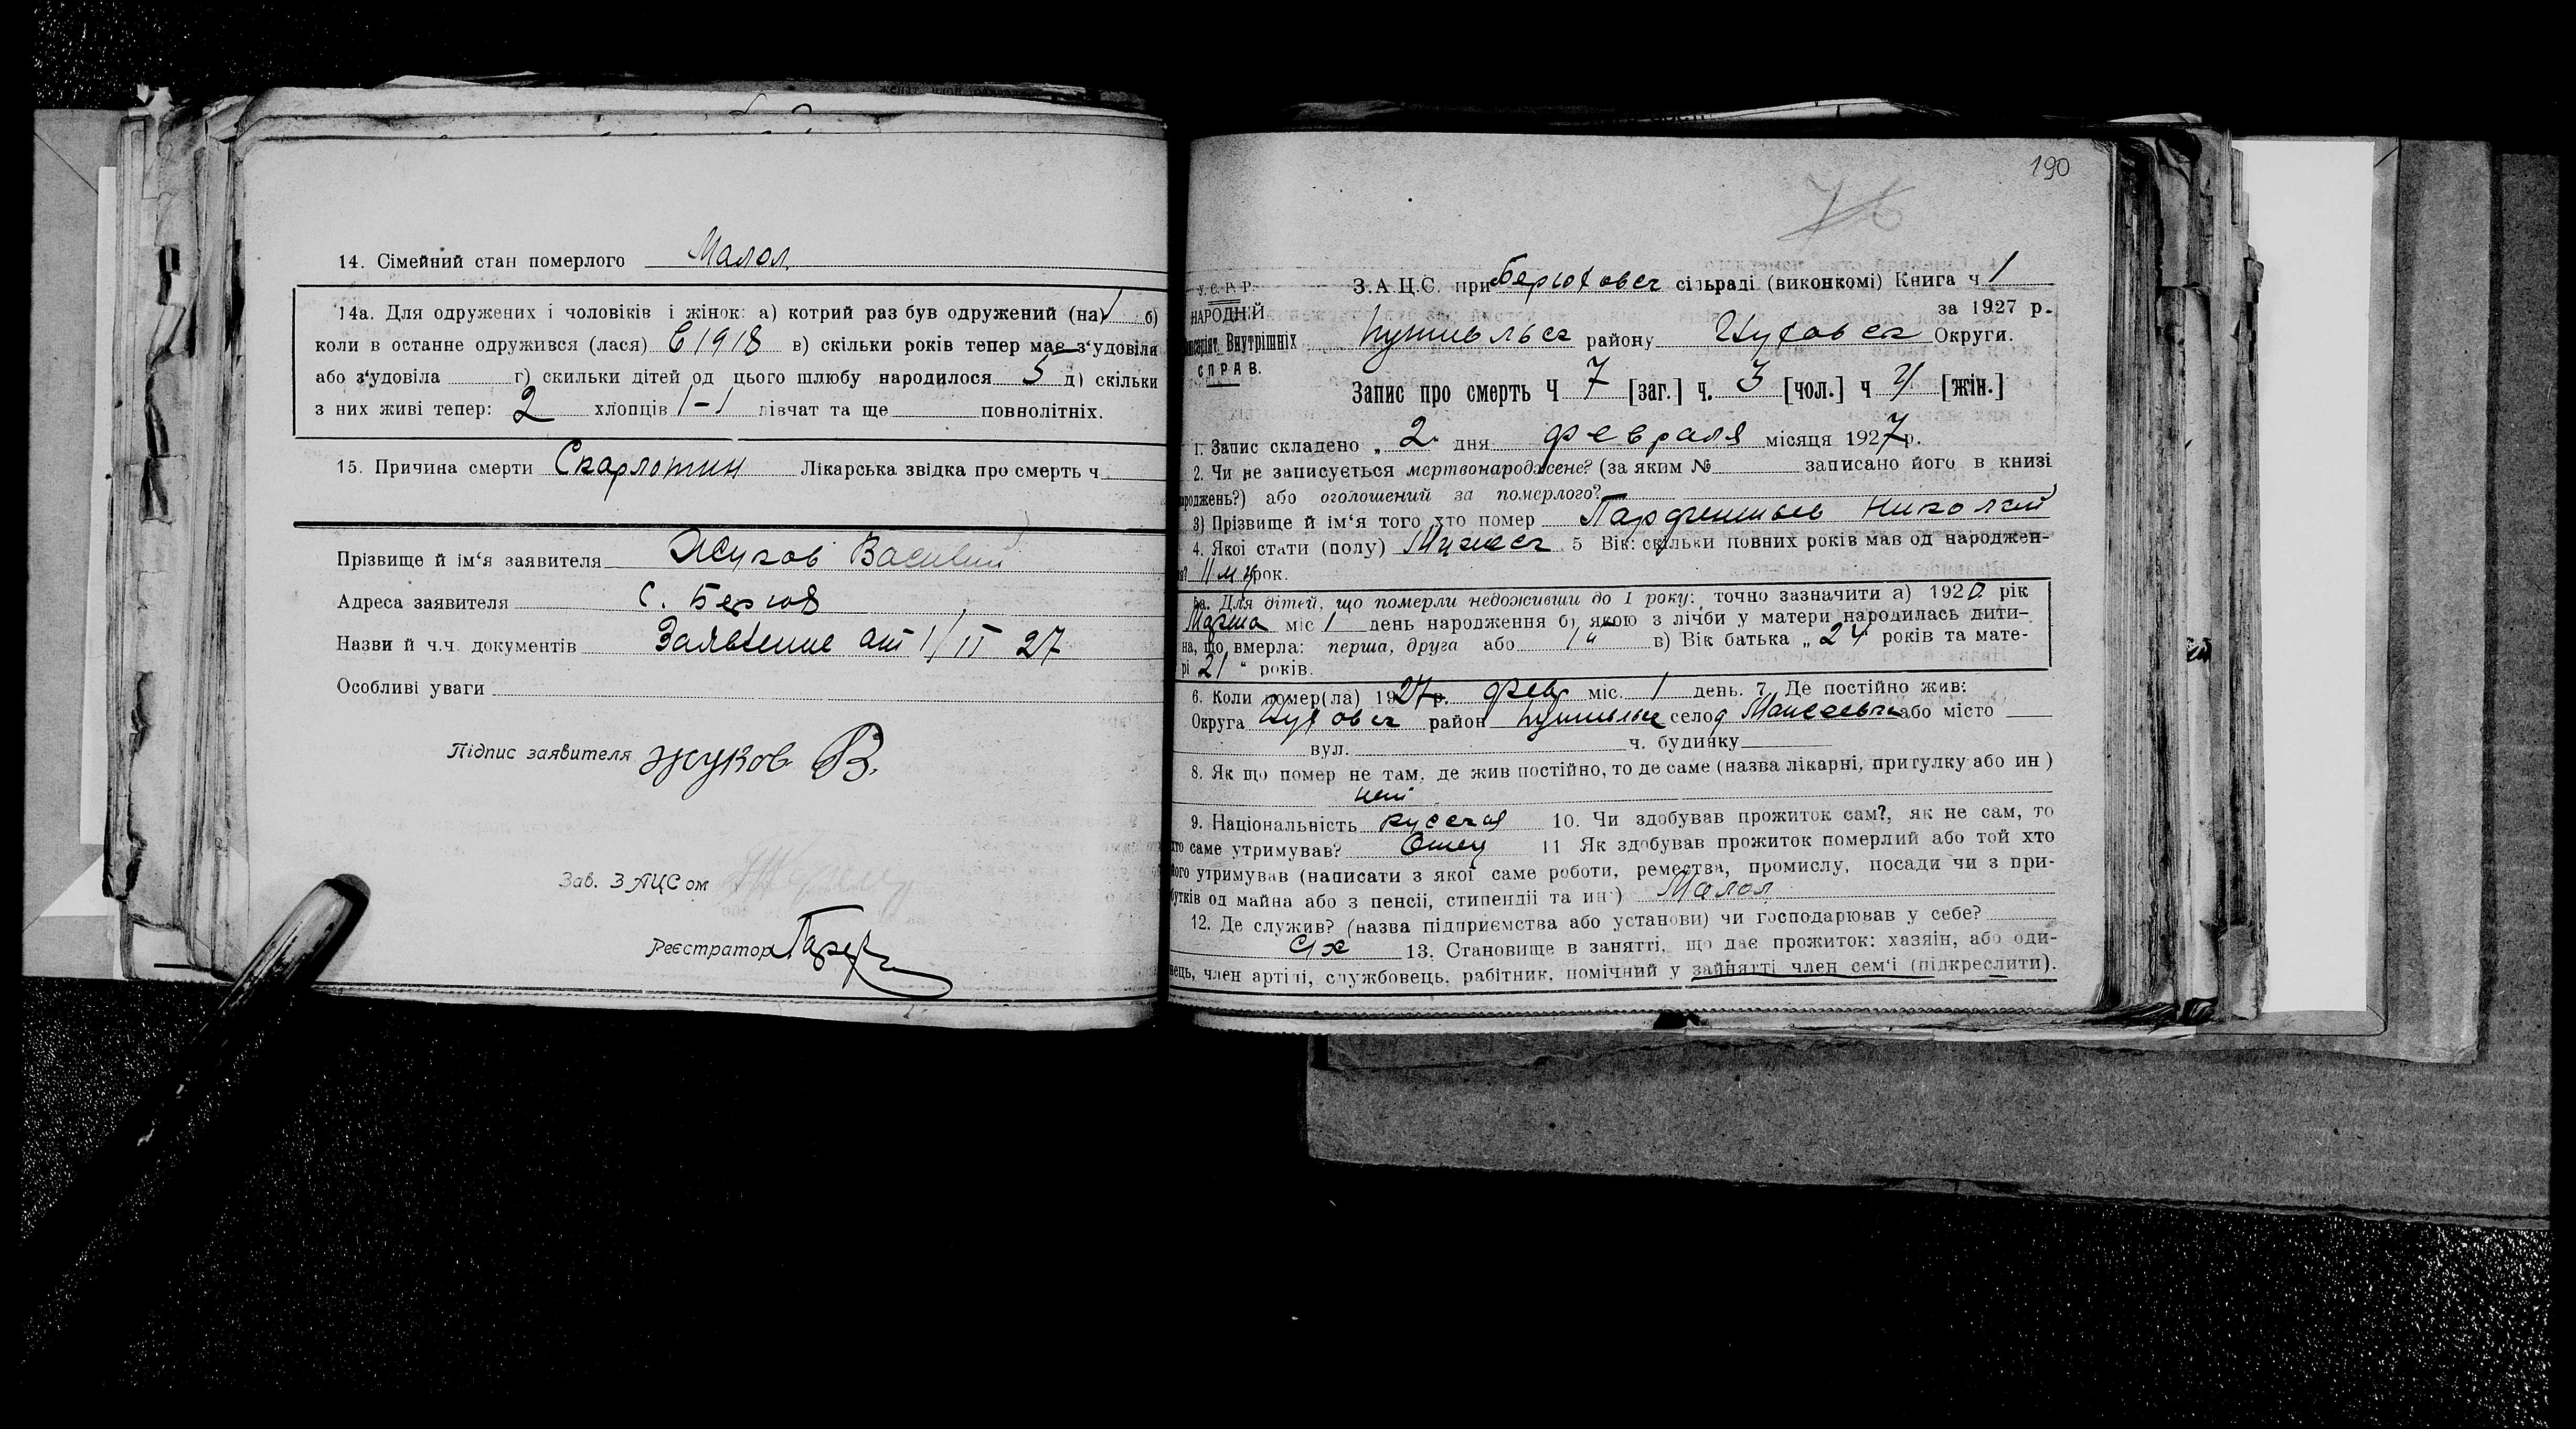 14. Сімейний стан померлого Малол.
14а. Для одружених і чоловіків і жінок: а) котрий раз був одружений (на) 1 б)
коли в останне одружився (лася) в 1918 в) скільки років тепер має з'удовіля
або з'удовіла г) скильки дітей од цього шлюбу народилося 5 д) скільки
з них живі тепер: 2 хлопців 1-1 дівчат та ще повнолітніх.
15. Причина смерти Скарлотин Лікарська звідка про смерть ч.
Прізвище й ім'я заявителя Жуков Василий
Адреса заявителя с. Берюх
Назви й ч.ч. документів Заявление от 1/II 27
Особливі уваги
Підпис заявителя Жуков В.
Зав. ЗАЦСом
Реєстратор
190
76
У.С.Р.Р.
НАРОДНІЙ
Внутрішніх
СПРАВ.
З.А.Ц.С. при Берюховск сільраді (виконкомі) Книга ч 1
за 1927 р.
Путивльск району Глуховск Округи.
Запис про смерть Ч 7 [заг.] ч. 3 [чол.] ч 4 [жін.]
1. Запис складено „ 2 дня февраля місяця 1927 р.
2. Чи не записується мертвонароджене? (за яким № записано його в книзі
народжень?) або оголошений за померлого?
3) Прізвище й ім'я того хто помер Парфентьев Николай
4. Якої стати (полу) Мужеск 5 Вік: скільки повних років мав од народжен-
11 м рок.
5а. Для дітей, що померли недоживши до 1 року: точно зазначити а) 192 рік
Марта міс 1 день народження б) якою з лічби у матери народилась дити-
на, що вмерла: перша, друга або 1 " в) Вік батька „ 24 років та мате-
рі 21 " років.
6. Коли помер(ла) 1927 р. фев міс. 1 день. 7. Де постійно жив:
Округа Глуховск район Путивльск село д Моисеевка або місто
вул. ч. будинку
8. Як що помер не там, де жив постійно, то де саме (назва лікарні, притулку або ин)
9. Національність русская 10. Чи здобував прожиток сам?, як не сам, то
хто саме утримував? Отец 11 Як здобував прожиток померлий або той хто
його утримував (написати з якої саме роботи, ремества, промислу, посади чи з при-
бутків од майна або з пенсії, стипендії та ин) Малол
12. Де служив? (назва підприємства або установи) чи господарював у себе?
с/х 13. Становище в занятті, що дає прожиток: хазяїн, або оди-
нець, член артілі, службовець, рабітник, помічний у зайнятті член сем'ї (підкреслити).